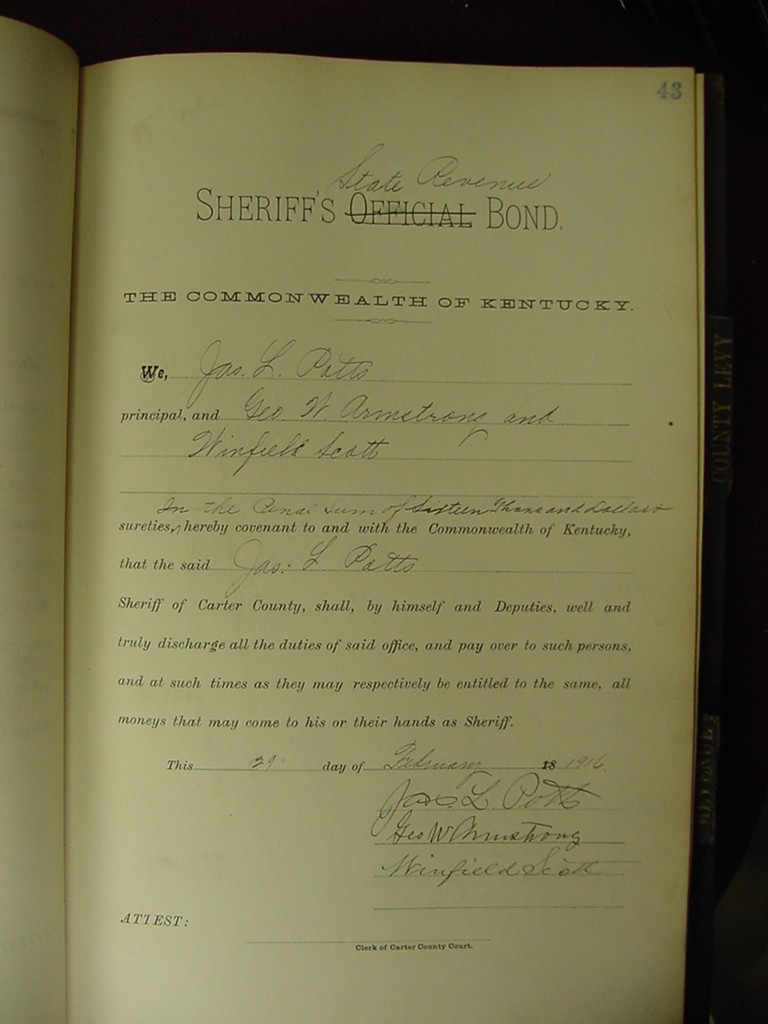 43
State Revenue
SHERIFF'S OFFICIAL BOND.
THE COMMONWEALTH OF KENTUCKY.
We, Jas. L. Potts
principal, and Geo W. Armstrong and
Winfield Scott
In the Penal sum of Sixteen Thousand Dollars
sureties, hereby covenant to and with the Commonwealth of Kentucky,
that the said Jas. L Potts
Sheriff of Carter County, shall, by himself and Deputies, well and
truly discharge all the duties of said office, and pay over to such persons,
and at such times as they may respectively be entitled to the same, all
moneys that may come to his or their hands as Sheriff.
This 29 day of February 18 1916
Jas. L. Potts
Geo W Armstrong
Winfield Scott
ATTEST:
Clerk of Carter County Court.
COUNTY LEVY
REVENUE